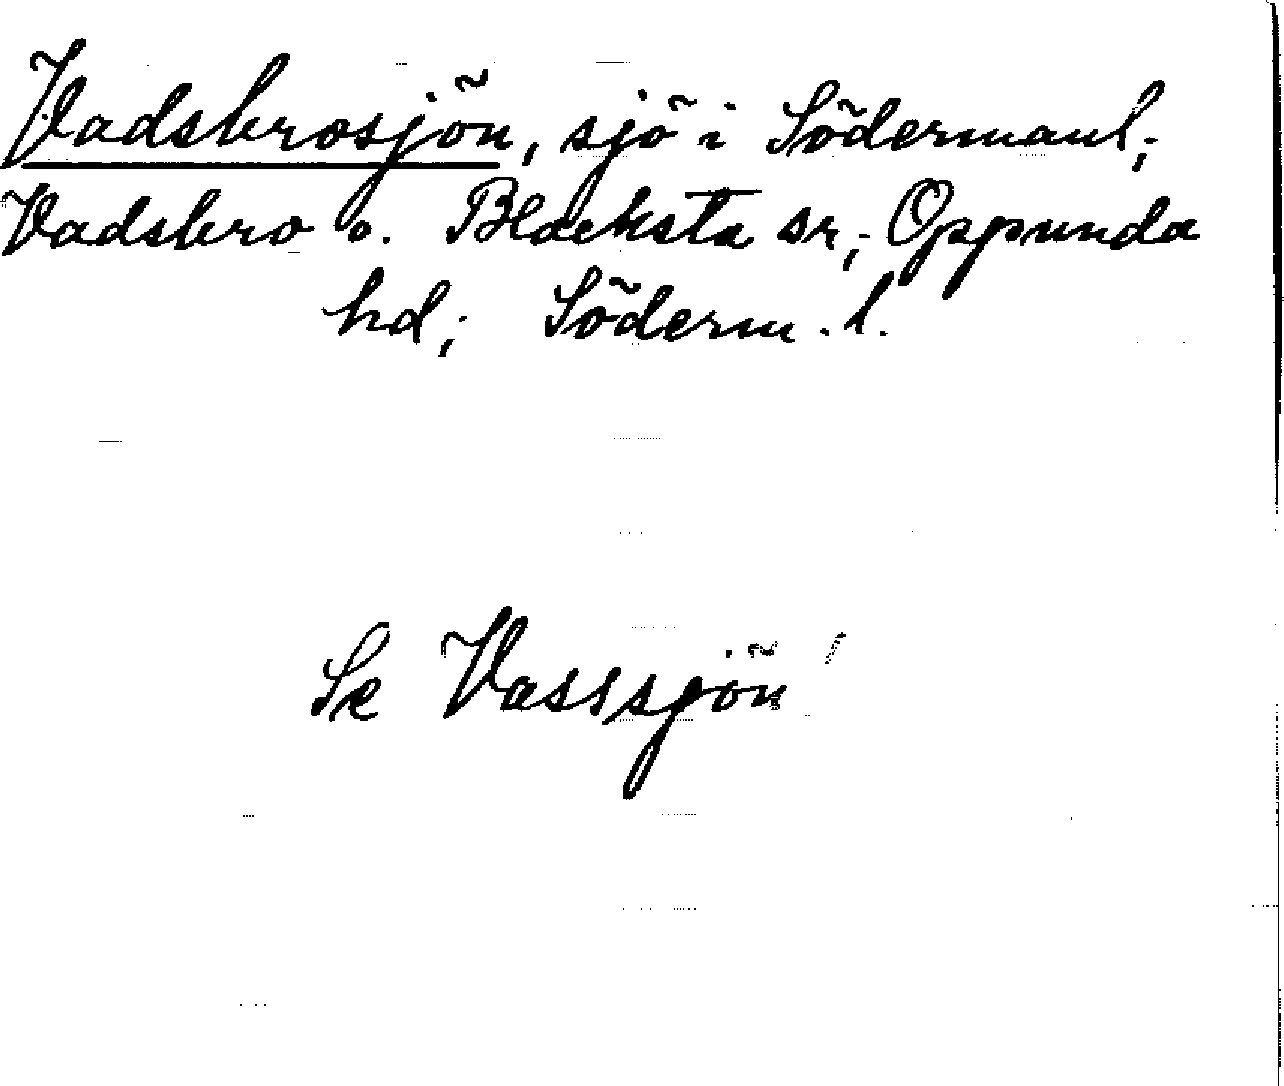 Vadsbrosjön, sjö i Södermanl;
Vadsbro o. Blacksta sr; Oppunda
hd; Söderm. l.
Se Vasssjön